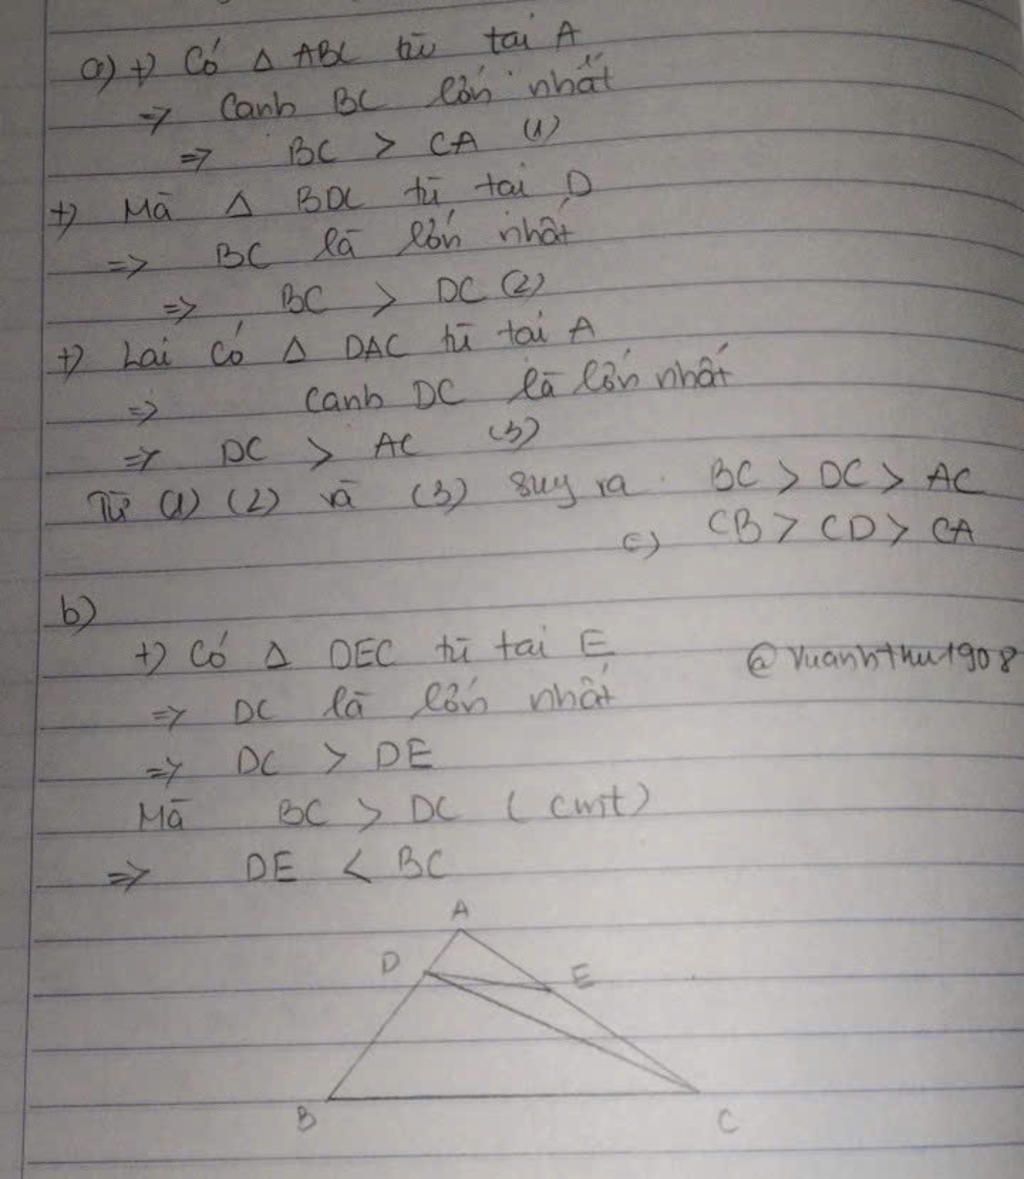 a) +) Có Δ ABC tù tại A
=> Cạnh BC lớn nhất
=> BC > CA (1)
+) Mà Δ BDC tù tại D
=> BC là lớn nhất
=> BC > DC (2)
+) Lại có Δ DAC tù tại A
=> Cạnh DC là lớn nhất
=> DC > AC (3)
Từ (1) (2) và (3) suy ra. BC > DC > AC
<=> CB > CD > CA
b)
+) Có Δ DEC tù tại E
@vuanhthu1908
=> DC là lớn nhất
=> DC > DE
Mà BC > DC (cmt)
=> DE < BC
A
D
E
B
C